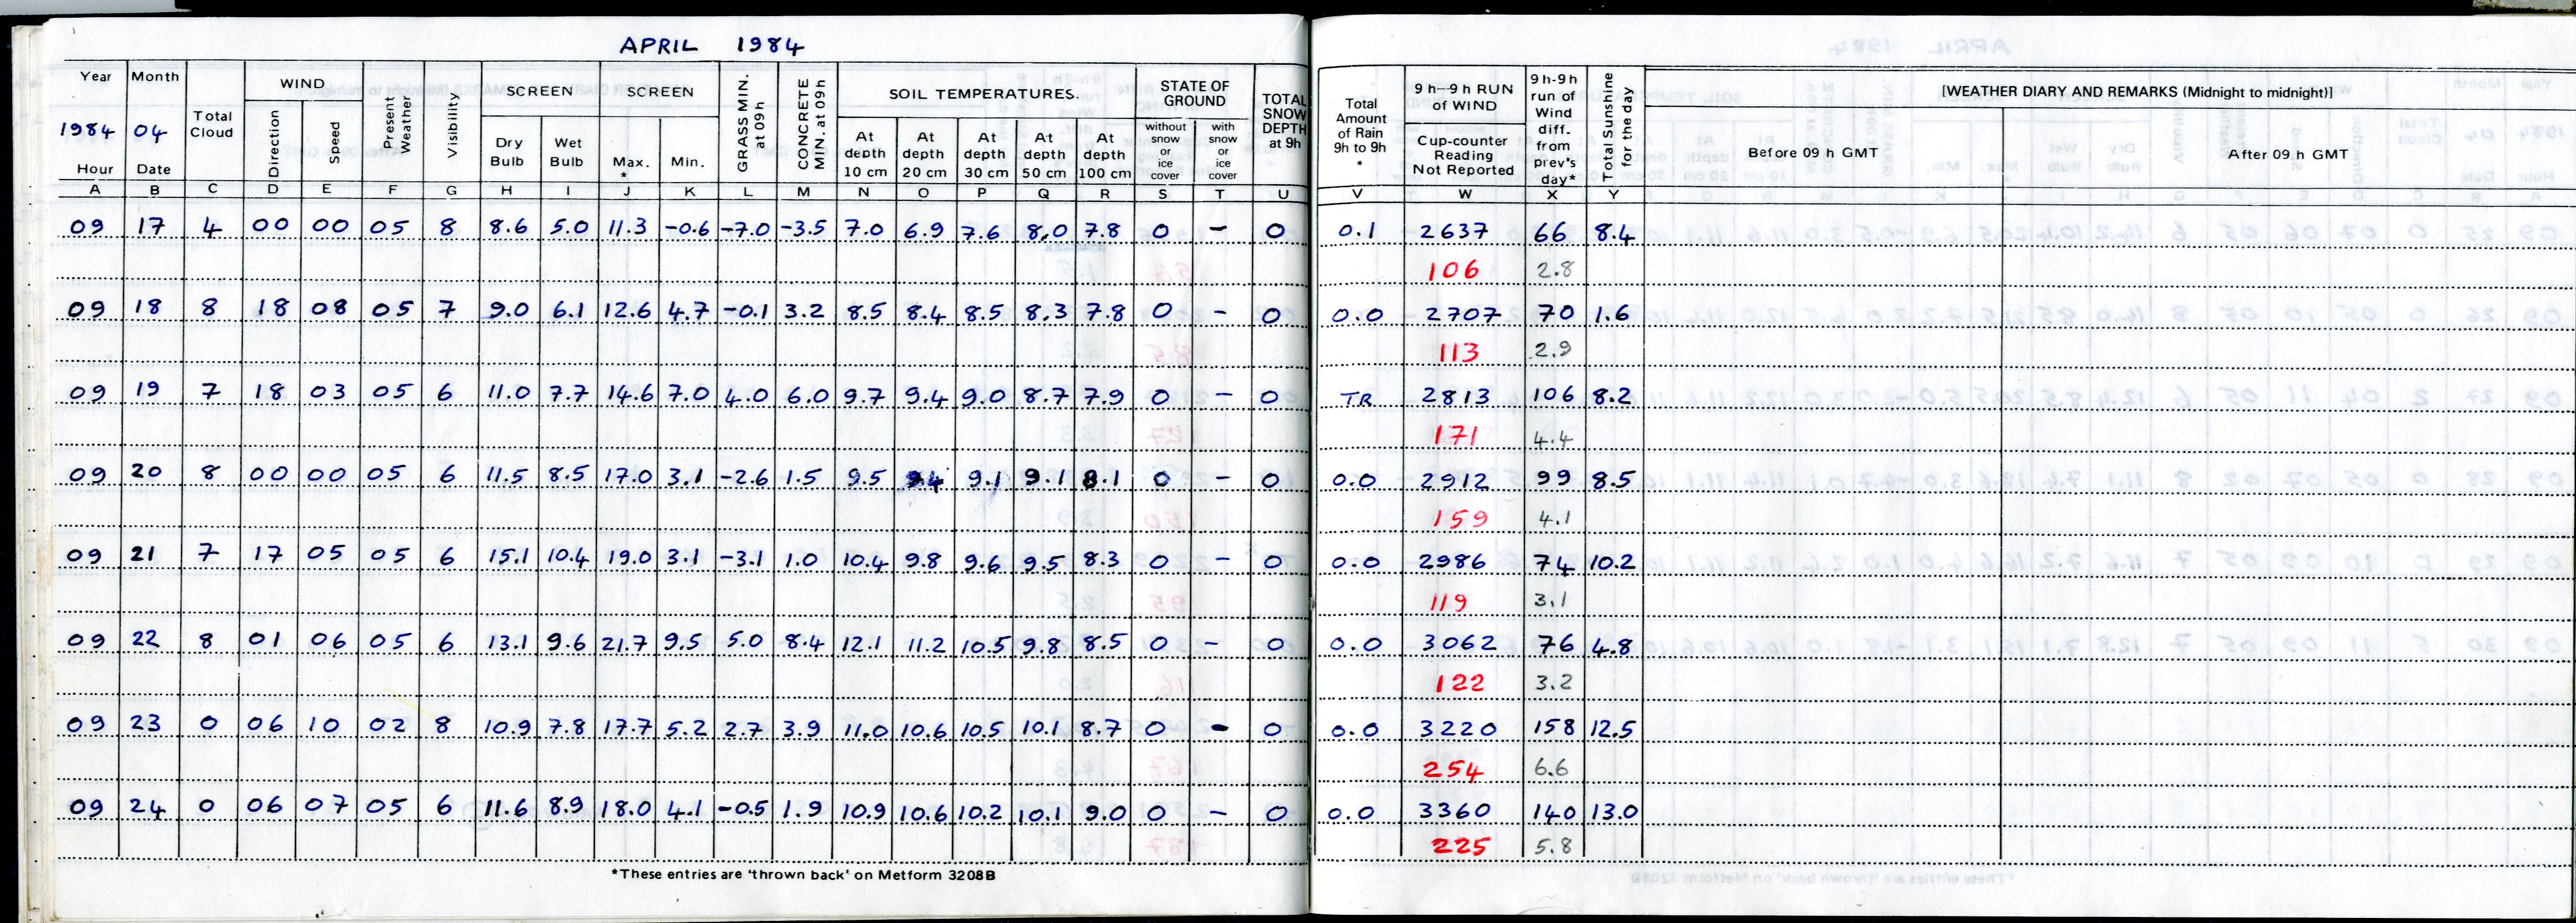 APRIL 1984
Year Month Total Cloud WIND Present Weather Visibility SCREEN SCREEN GRASS MIN. at 09h CONCRETE MIN. at 09h SOIL TEMPERATURES. STATE OF GROUND TOTAL SNOW DEPTH at 9h Total Amount of Rain 9h to 9h * 9 h–9 h RUN of WIND 9 h-9 h run of Wind diff. from prev's day* Total Sunshine for the day [WEATHER DIARY AND REMARKS (Midnight to midnight)]
1984 04 Direction Speed Dry Bulb Wet Bulb Max. * Min. At depth 10 cm At depth 20 cm At depth 30 cm At depth 50 cm At depth 100 cm without snow or ice cover with snow or ice cover Cup-counter Reading Not Reported Before 09 h GMT After 09 h GMT
Hour Date
A B C D E F G H I J K L M N O P Q R S T U V W X Y
09 17 4 00 00 05 8 8.6 5.0 11.3 -0.6 -7.0 -3.5 7.0 6.9 7.6 8.0 7.8 0 - 0 0.1 2637 66 8.4
106 2.8
09 18 8 18 08 05 7 9.0 6.1 12.6 4.7 -0.1 3.2 8.5 8.4 8.5 8.3 7.8 0 - 0 0.0 2707 70 1.6
113 2.9
09 19 7 18 03 05 6 11.0 7.7 14.6 7.0 4.0 6.0 9.7 9.4 9.0 8.7 7.9 0 - 0 TR 2813 106 8.2
171 4.4
09 20 8 00 00 05 6 11.5 8.5 17.0 3.1 -2.6 1.5 9.5 9.4 9.1 9.1 8.1 0 - 0 0.0 2912 99 8.5
159 4.1
09 21 7 17 05 05 6 15.1 10.4 19.0 3.1 -3.1 1.0 10.4 9.8 9.6 9.5 8.3 0 - 0 0.0 2986 74 10.2
119 3.1
09 22 8 01 06 05 6 13.1 9.6 21.7 9.5 5.0 8.4 12.1 11.2 10.5 9.8 8.5 0 - 0 0.0 3062 76 4.8
122 3.2
09 23 0 06 10 02 8 10.9 7.8 17.7 5.2 2.7 3.9 11.0 10.6 10.5 10.1 8.7 0 - 0 0.0 3220 158 12.5
254 6.6
09 24 0 06 07 05 6 11.6 8.9 18.0 4.1 -0.5 1.9 10.9 10.6 10.2 10.1 9.0 0 - 0 0.0 3360 140 13.0
225 5.8
*These entries are 'thrown back' on Metform 3208B